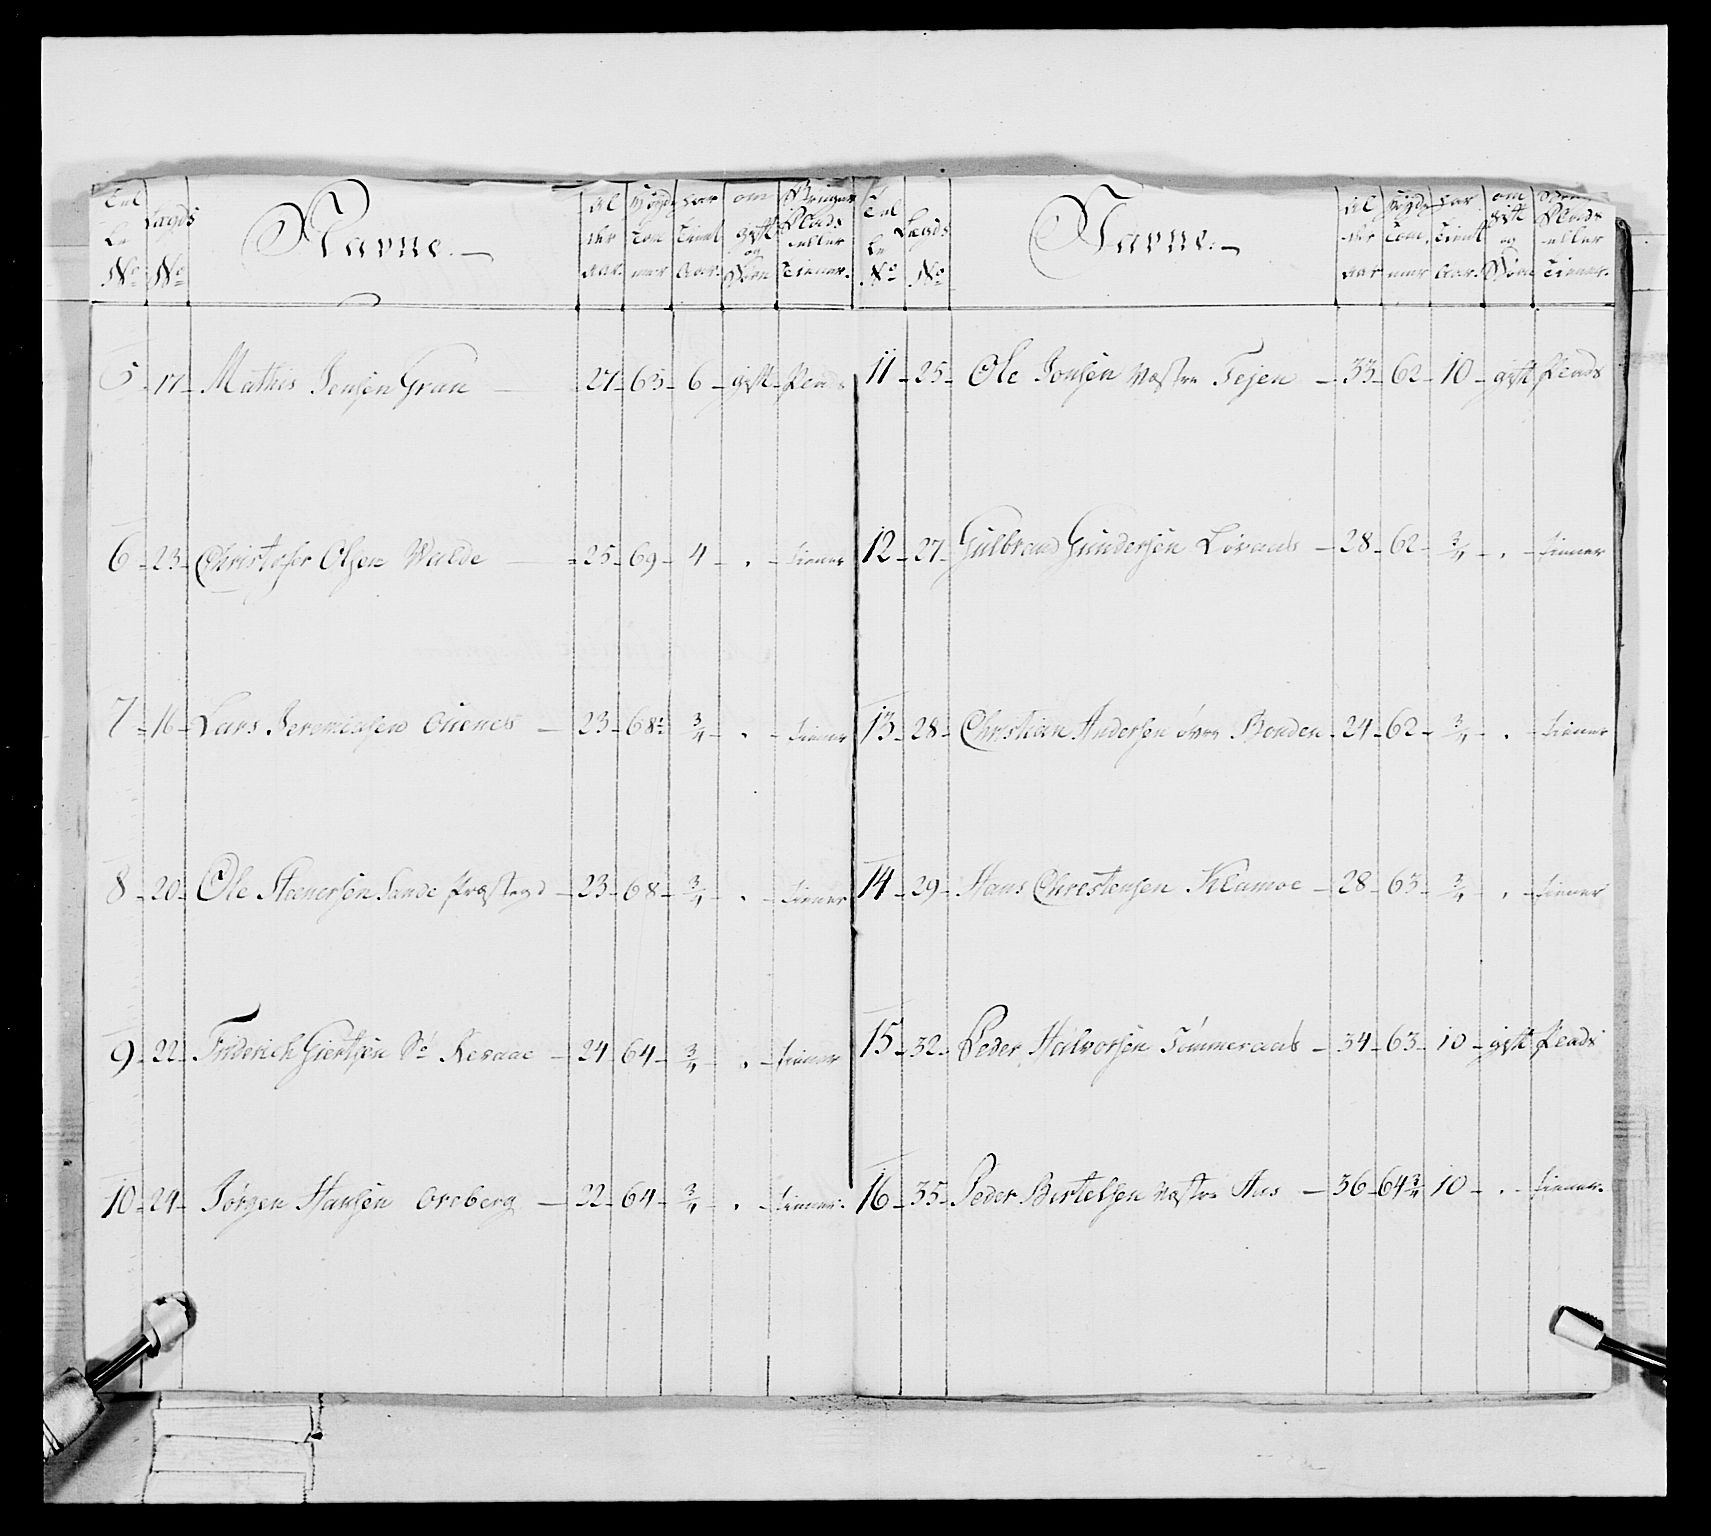 Tal Lægds Al Høyde har om Bruger
le Navne. der Tom Tient gift Plads
No No Aar. mer Aar. og Børn eller Tiener.
5 17 Mathis Jensen Gran 27 63 6 gift Plads
6 23 Christofer Olsen Walde 25 69 4 . tiener
7 16 Lars Jeremiesen 23 68½ ¾ . tiener
8 20 Ole Steenersen Sande Præstegd 23 68 ¾ . tiener
9 22 Friderich Giertsen 24 64 ¾ . tiener
10 24 Jørgen Hansen Oreberg 22 64 ¾ . tiener.
Tal Lægds Al Høyde har om
le Navne. der Tom Tient gift Plads
No No Aar mer Aar. og Børn eller Tiener.
11 25 Ole Jonsen Væstre Tejen 33 62 10 gift Plads
12 27 Gulbrand Gundersen Løvaas 28 62 ¾ . tiener
13 28 Christian Andersen øvre Bonden 24 62 ¾ . tiener
14 29 Hans Christensen Klamoe 28 63 ¾ . tiener
15 32 Peder Halvorsen Tømmeraas 34 63 10 gift Plads
16 35 Peder Bertelsen Væstre Aas 36 64¾ 10 . tiener.